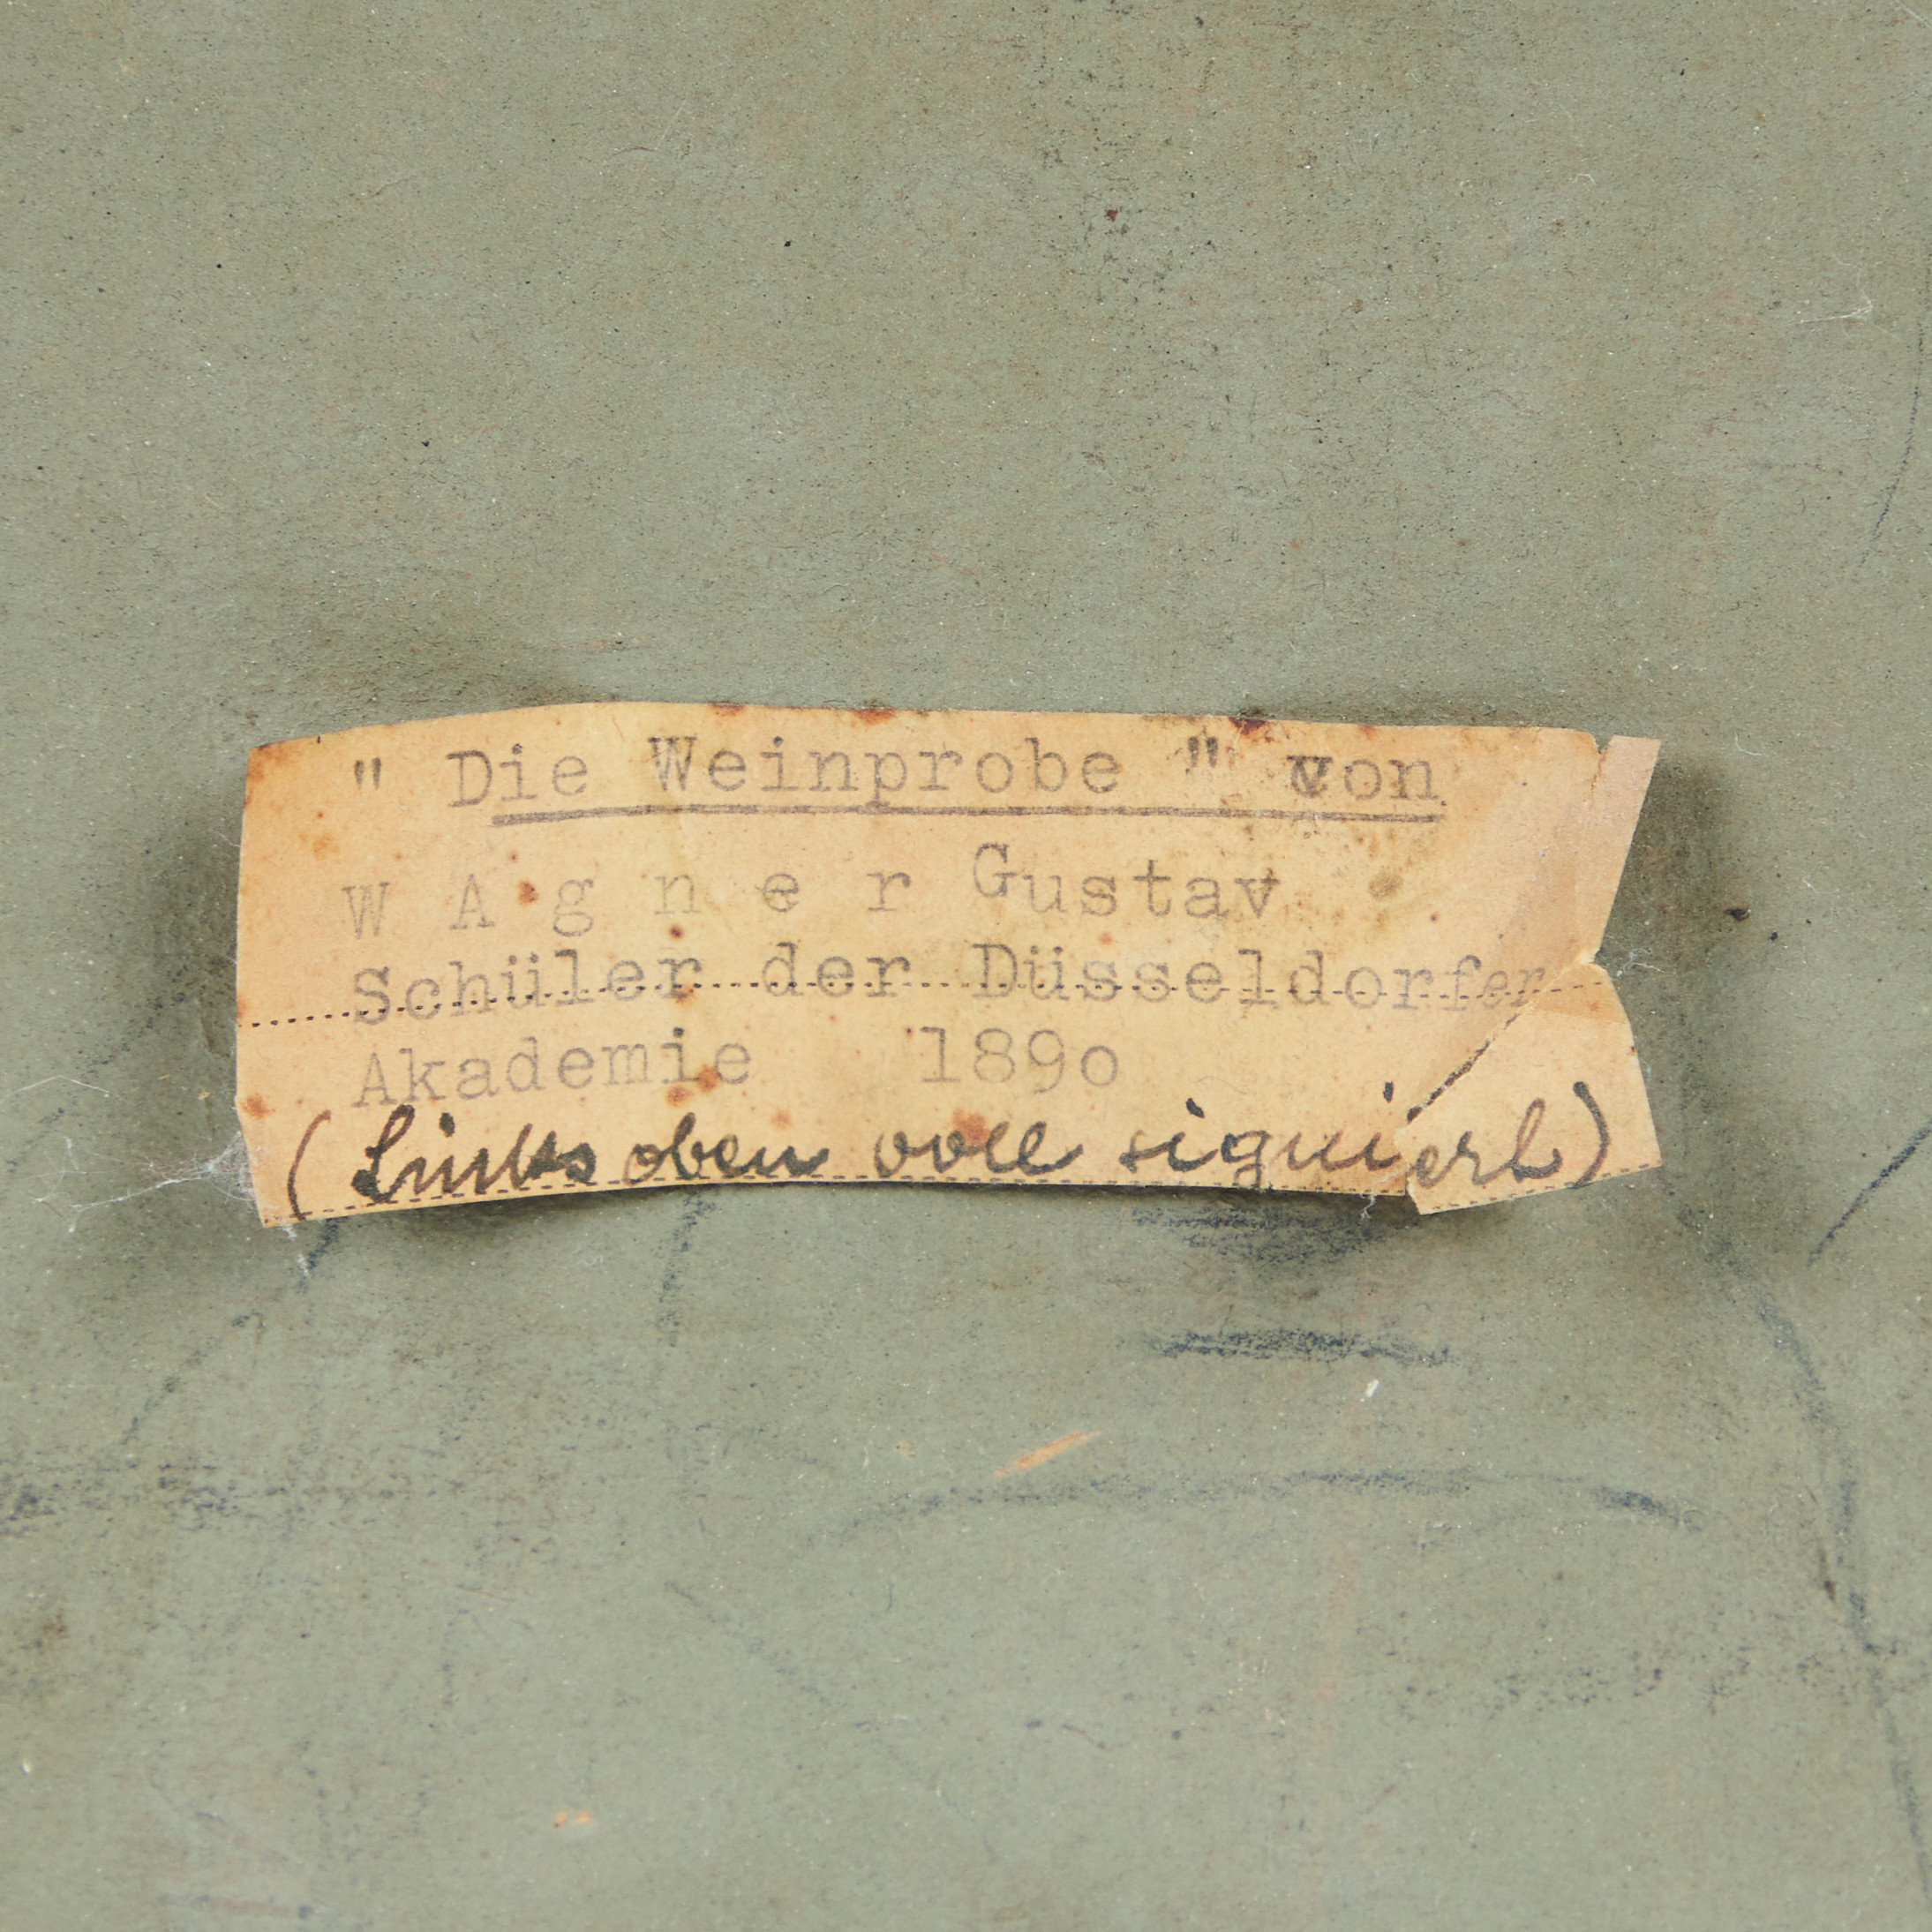 " Die Weinprobe " von
W A g n e r Gustav
Schüler der Düsseldorfer
Akademie 189o
(Links oben voll signiert)